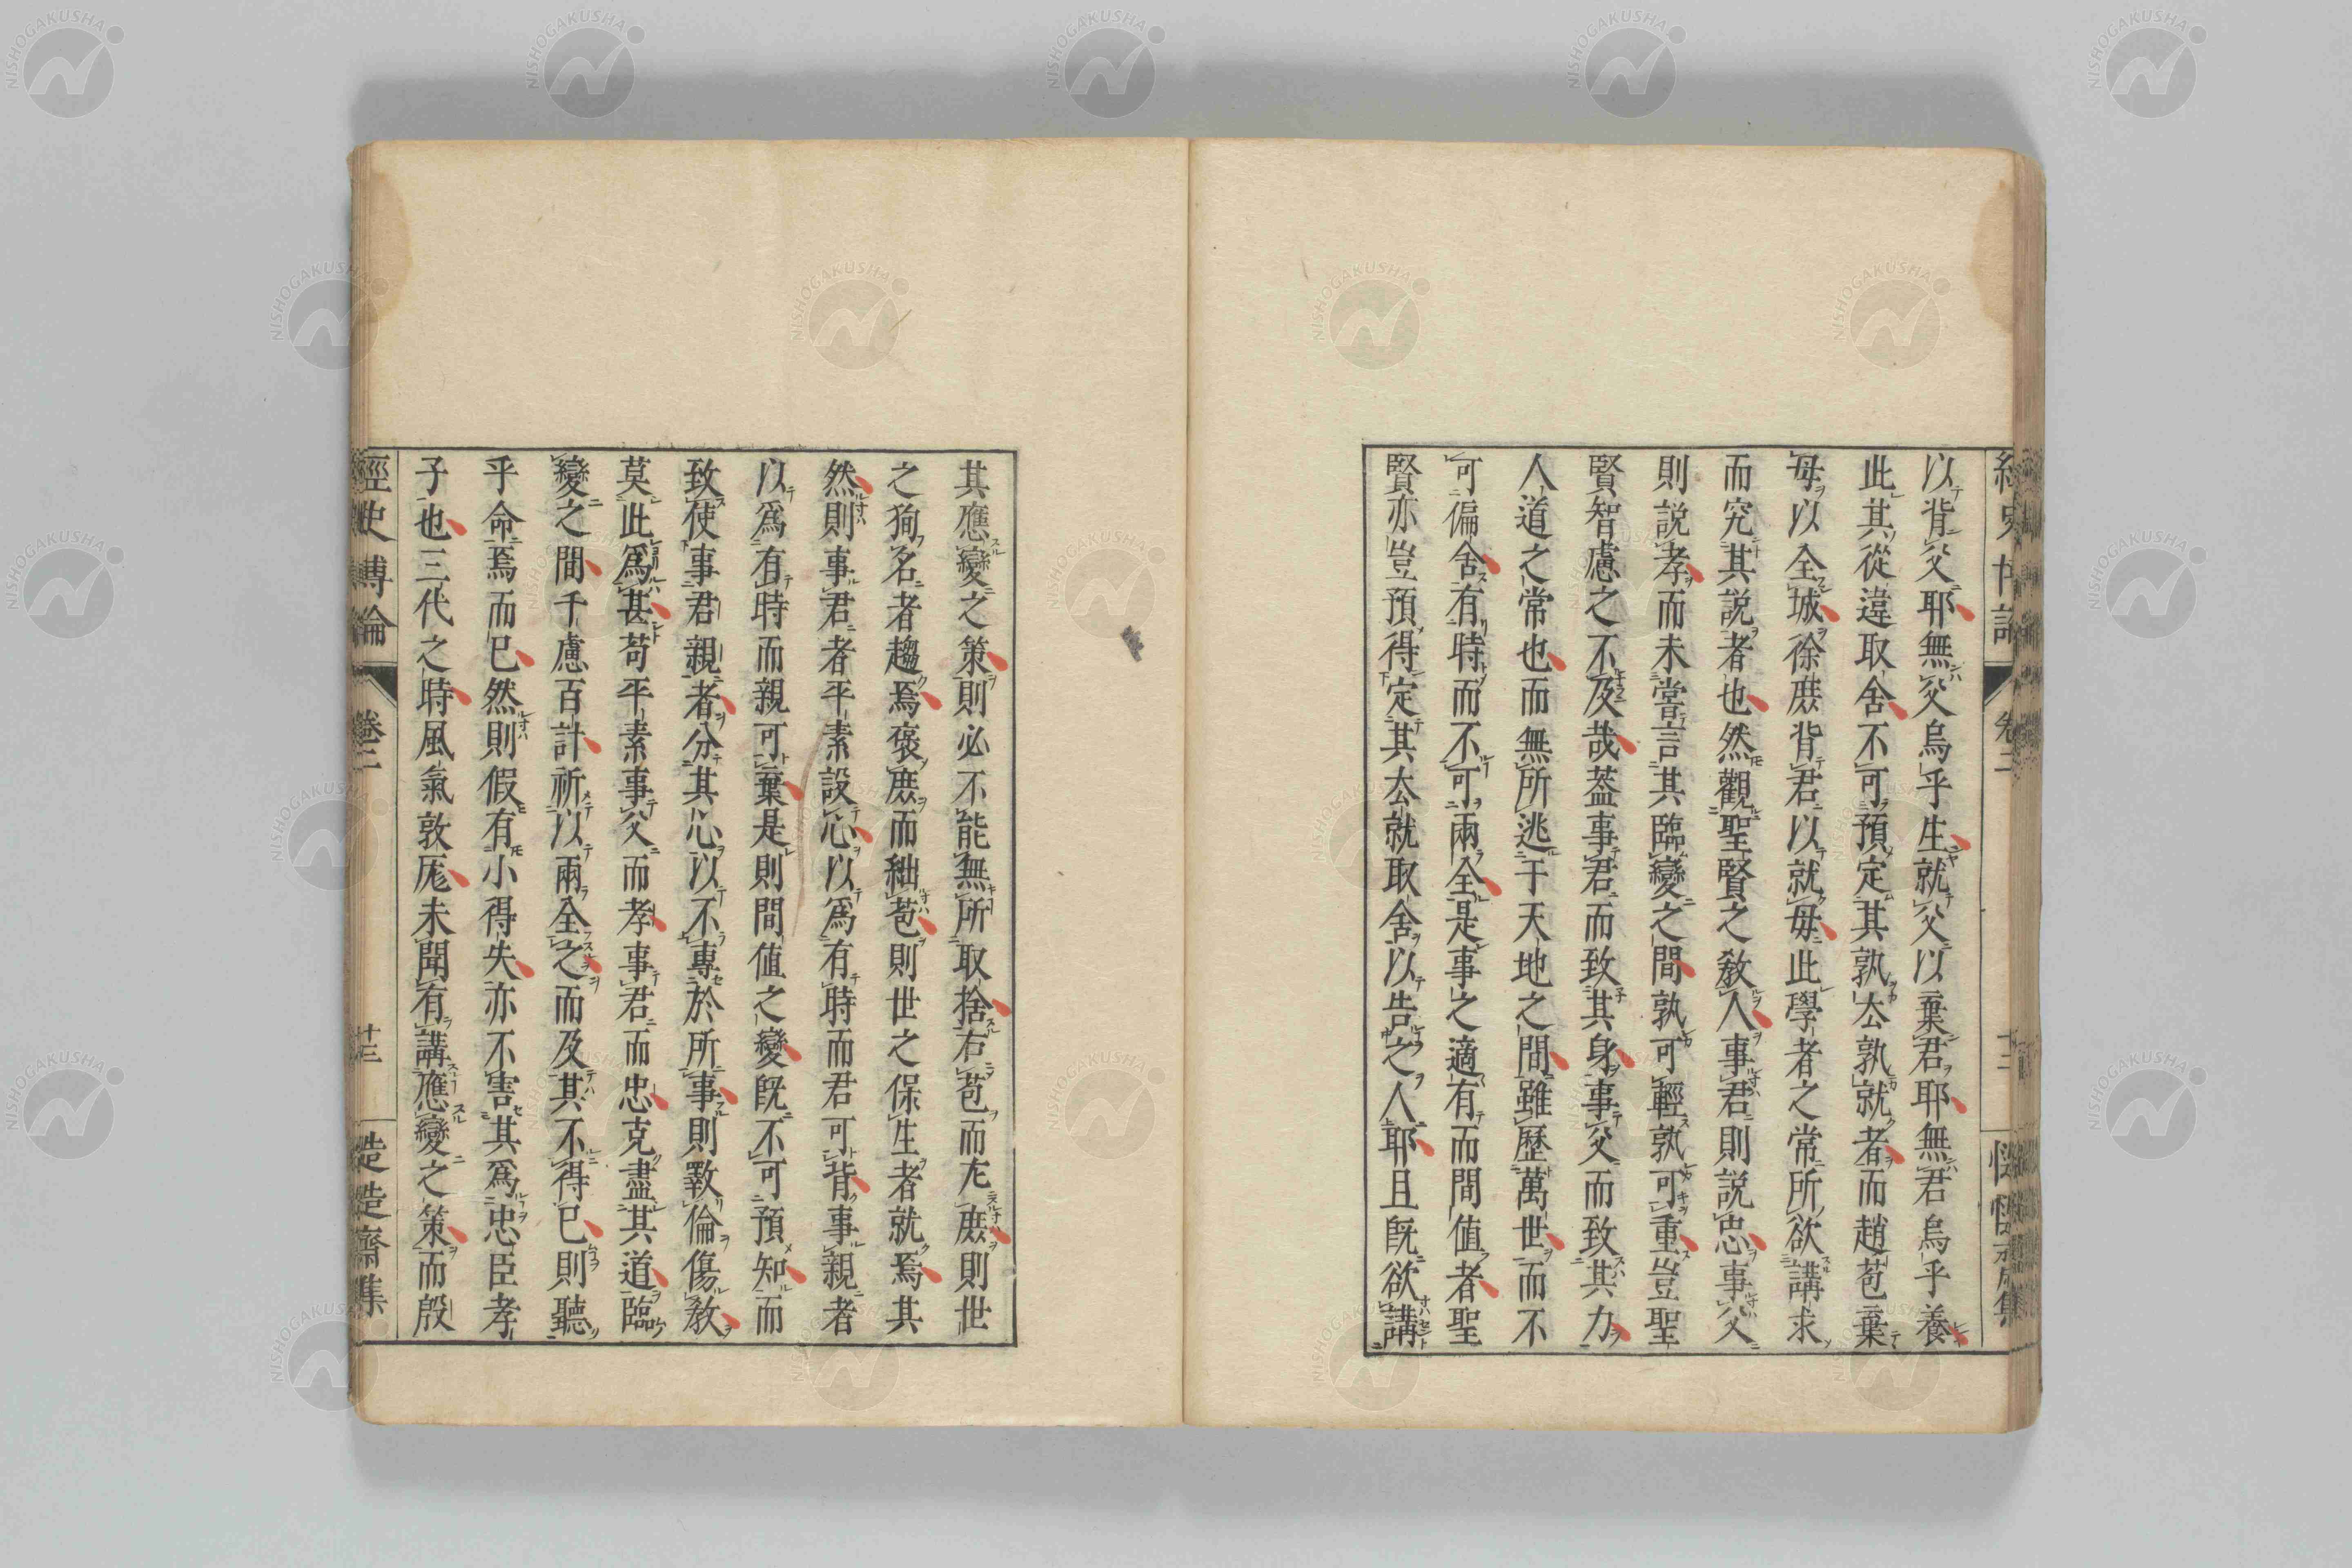 以背父耶無父烏乎生就父以棄君耶無君烏乎養
此其從違取舍不可預定其孰厺孰就者而趙苞棄
母以全城徐庶背君以就母此學者之常所欲講求
而究其說者也然觀聖賢之敎人事君則說忠事父
則說孝而未嘗言其臨變之間孰可輕孰可重豈聖
賢智慮之不及哉蓋事君而致其身事父而致其力
人道之常也而無所逃于天地之間雖歷萬世而不
可偏舍有時而不可兩全是事之適有而間値者聖
賢亦豈預得定其厺就取舍以告之人耶且旣欲講
其應變之策則必不能無所取捨右苞而左庶則世
之狥名者趨焉褒庶而絀苞則世之保生者就焉其
然則事君者平素設心以爲有時而君可背事親者
以爲有時而親可棄是則間値之變旣不可預知而
致使事君親者分其心以不專於所事則斁倫傷敎
莫此爲甚苟平素事父而孝事君而忠克盡其道臨
變之間千慮百計祈以兩全之而及其不得已則聽
乎命焉而已然則假有小得失亦不害其爲忠臣孝
子也三代之時風氣敦厖未聞有講應變之策而殷
經史博論
卷二
十三
造造齋集